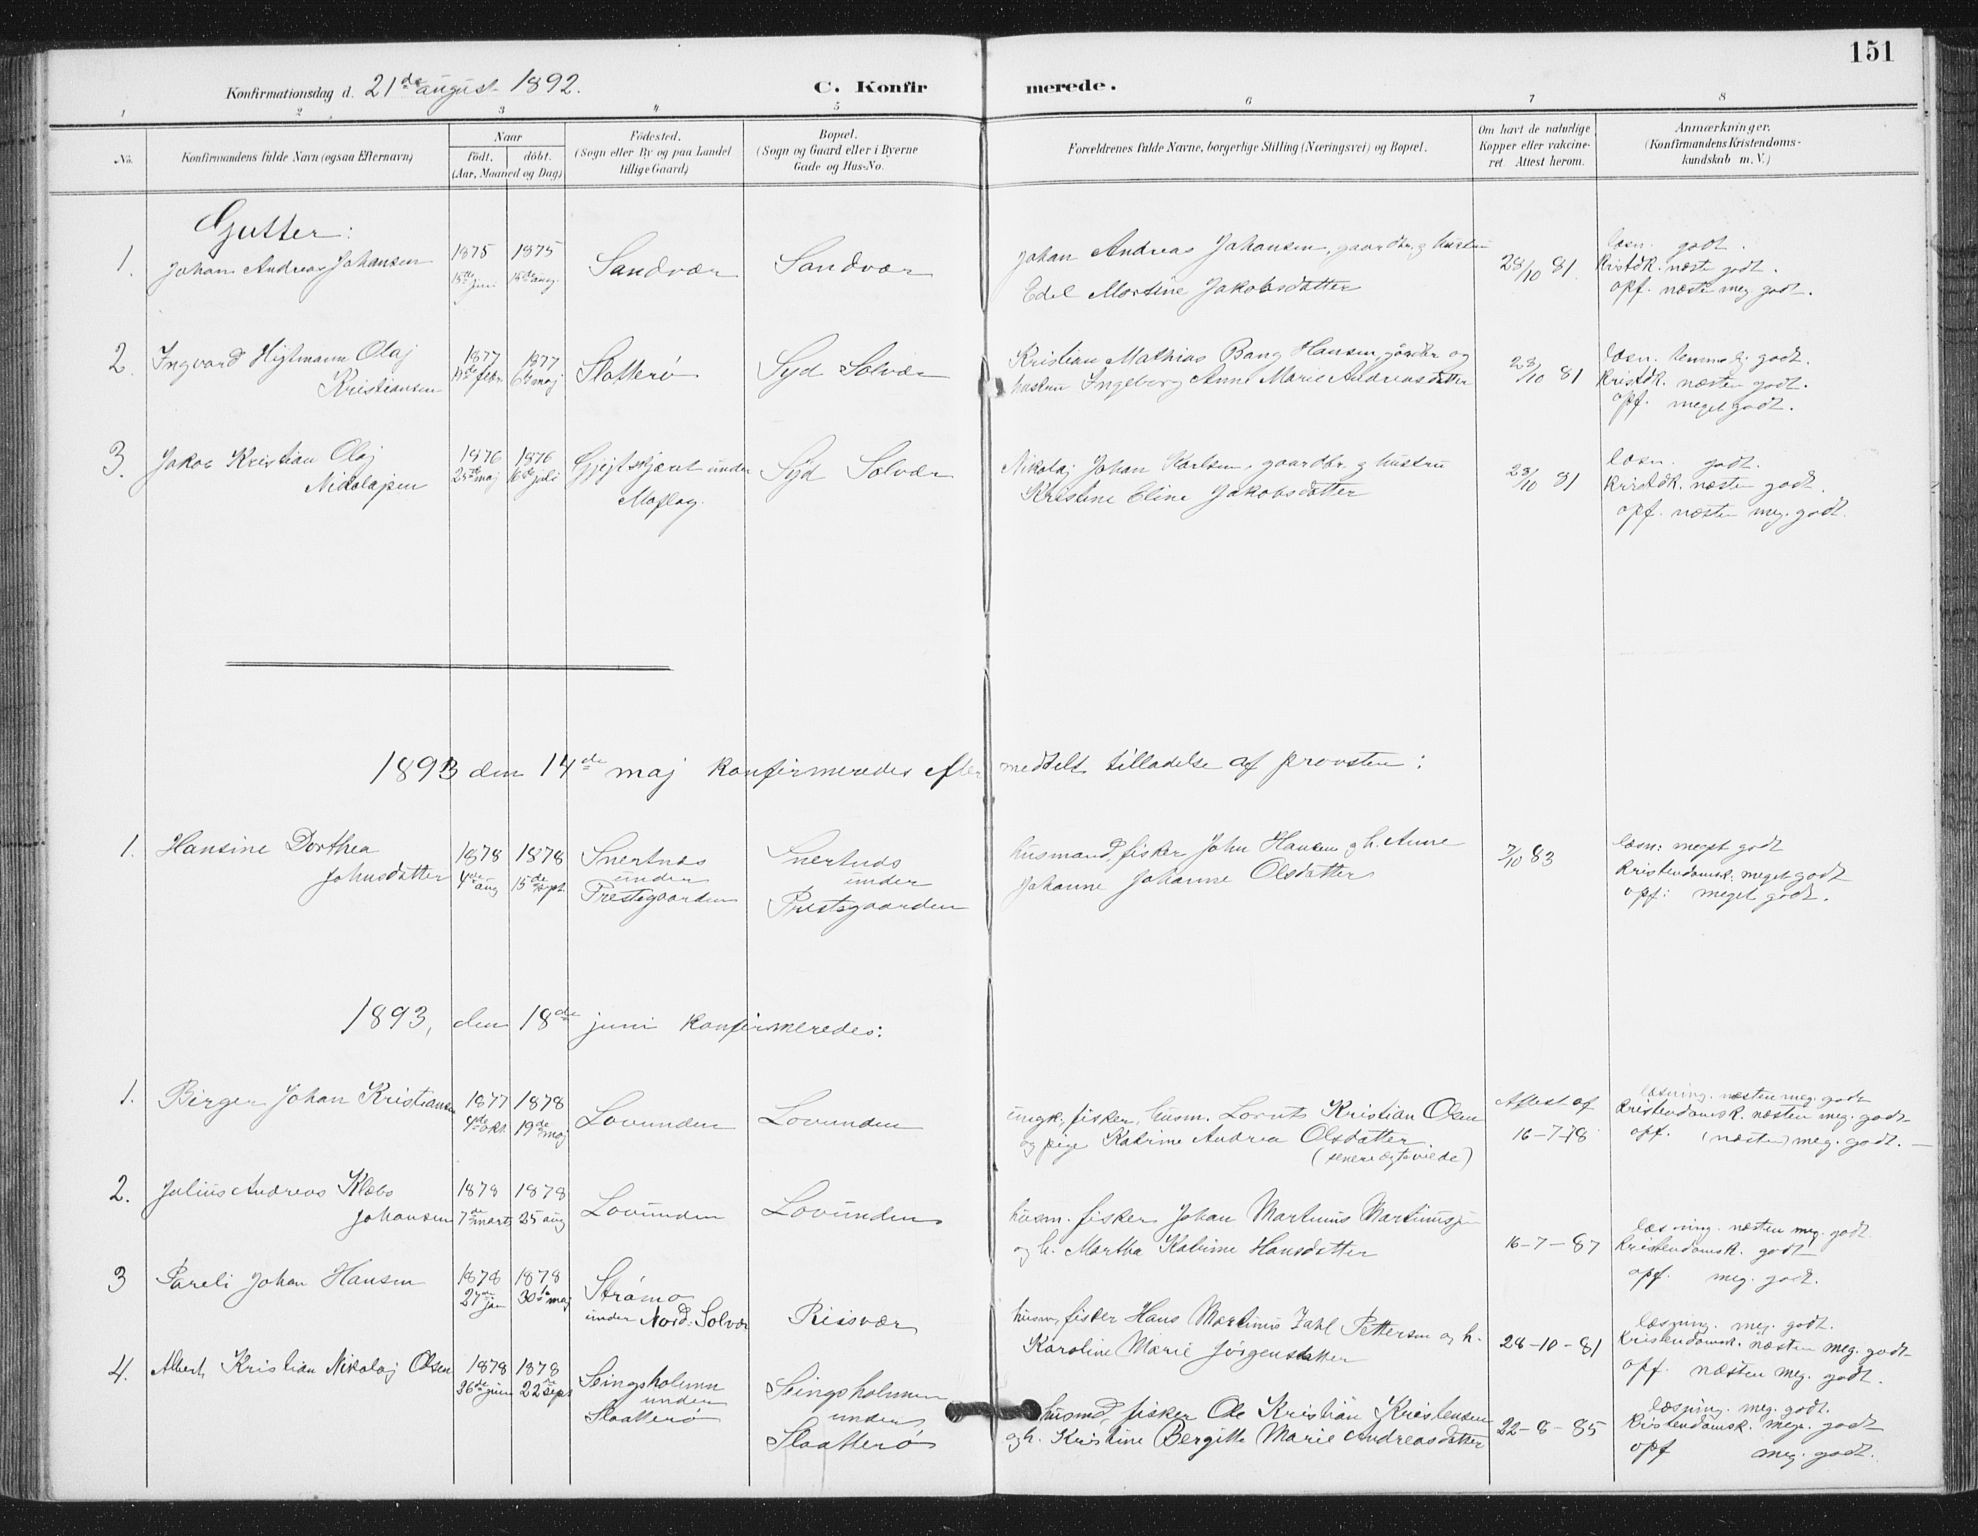 151
Konfirmationsdag d. 21de august 1892.
C. Konfirmerede.
1 2 3 4 5 6 7 8
No.
Konfirmandens fulde Navn (ogsaa Efternavn)
Naar
født. døbt.
(Aar, Maaned og Dag)
Fødested.
(Sogn eller By og paa Landet
tillige Gaard)
Bopæl.
(Sogn og Gaard eller i Byerne
Gade og Hus-No.
Forældrenes fulde Navne, borgerlige Stilling (Næringsvei) og Bopæl.
Om havt de naturlige
Kopper eller vakcine-
ret. Attest herom.
Anmærkninger.
(Konfirmandens Kristendoms-
kundskab m. V.)
Gutter:
1. Johan Andreas Johansen
1875 15de juni
1875 15de aug.
Sandvær
Sandvær
Johan Andreas Johansen, gaardbr. g hustru
Edel Martine Jakobsdatter
28/10 81.
læsn. godt.
kristdk. næsten godt.
opf. næsten meg. godt.
2. Ingvard Olaj
Kristiansen
1877 febr.
1877 6te maj
Slatterø
Syd Solvær
Kristian Mathias Bang Hansen, gaardbr. og
hustru Ingeborg Anne Marie Andreasdatter
28/10 81
læsn. temmelig godt.
kristdk. næsten godt.
opf. meget godt.
3. Jakob Kristian Olaj
Nikolajsen
1876 25de maj
1876 16de juli
under
Moflag.
Syd Solvær
Nikolaj Johan Karlsen, gaardbr. g hustru
Kristine Eline Jakobsdatter
28/10 81
læsn. godt.
kristdk. næsten godt.
opf. næsten meg. godt.
1893 den 14de maj konfirmeredes efter meddelt tilladelse af provsten:
1. Hansine Dorthea
Johnsdatter
1878 4de aug
1878 15de sept.
Snertnæs
under
Prestegaarden
Snertnæs
under
Prestegaarden
husmand, fisker John Hansen g h. Anne
Johanne Johanne Olsdatter
7/10 83
læsn: meget godt
kristendomsk: meget godt
opf: meget godt.
1893, den 18de juni konfirmeredes:
1. Birger Johan Kristiansen
1877 4de okt.
1878 19de maj
Lovunden
Lovunden
ungk., fisker, husm. Lornts Kristian Olsen
og pige Katrine Andrea Olsdatter.
(senere ægteviede)
Attest af
16-7-78
læsning. næsten meg. godt
kristendomsk. næsten meg. godt
opf. (næsten) meg. godt.
2. Julius Andreas Klæbo
Johansen
1878 7de marts
1878 25 aug
Lovunden
Lovunden
husm. fisker Johan Martinus Martinussen
og h. Martha Katrine Hansdatter
16-7-87
læsning. næsten meg. godt.
kristendomsk. godt
opf. meg. godt.
3 Pareli Johan Hansen
1878 27de jan
1878 30te maj
Strømø
under Nord-Solvær
Riisvær
husm, fisker Hans Martinus Zahl Pettersen og h.
Karoline Marie Jørgensdatter
28-10-81
læsning. meg. godt.
kristendomsk. næsten meg. godt
opf. næsten meg. godt.
4. Albert Kristian Nikolaj Olsen
1878 26de juni
1878 22de sept
Seingsholmen
under
Slaatterø
Seingsholmen
under
Slaatterø
husmd, fisker Ole Kristian Kristensen
og h. Kristine Bergitte Marie Andreasdatter
22-8-85
læsning. meg. godt.
kristendomsk. meg. godt
opf meg. godt.